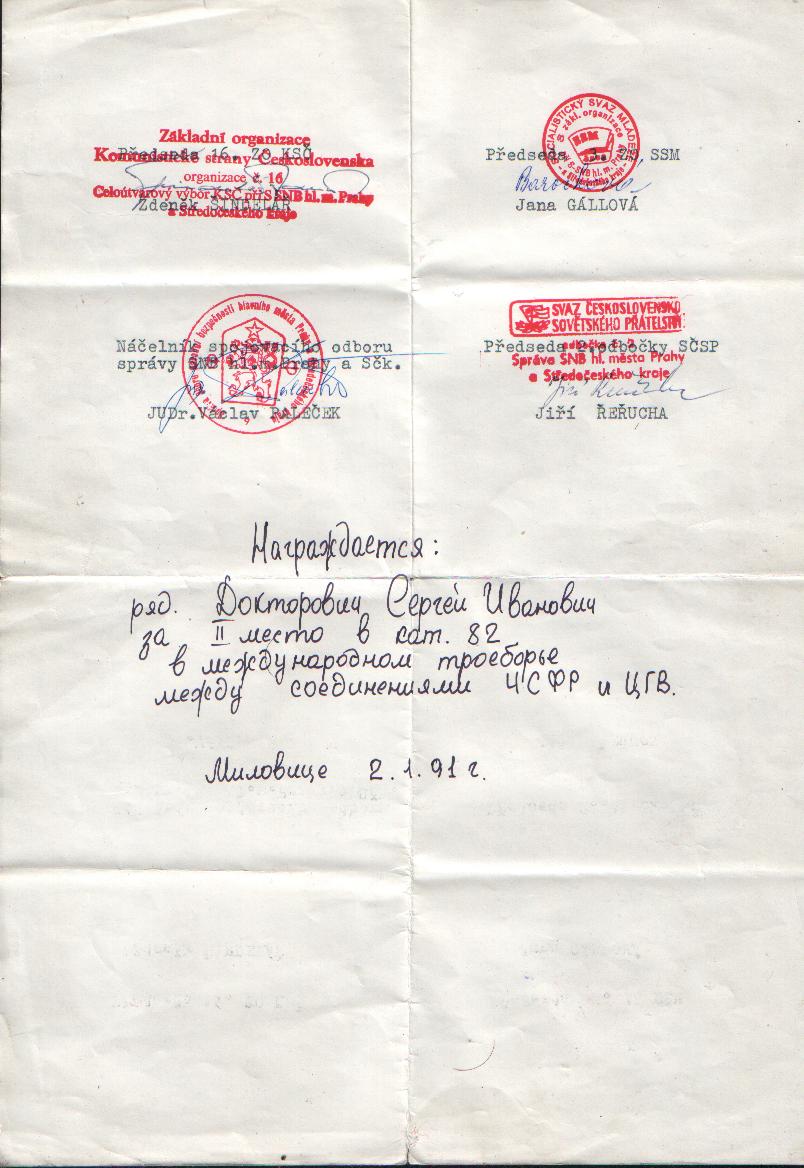 Základní organizace
Komunistické strany Československa
organizace č. 16
Celoútvarový výbor KSČ při S SNB hl. m. Prahy
a Středočeského kraje
Předseda 16. ZO KSČ
Zdeněk ŠINDELÁŘ
SOCIALISTICKÝ SVAZ MLÁDEŽE
zákl. organizace
SSM
S-SNB hl. m. Prahy
a Středočeského kraje
Předseda ZO SSM
Jana GÁLLOVÁ
Náčelník spojovacího odboru
správy SNB hl.m.Prahy a Sčk.
bezpečnosti hlavního města Prahy a Středočeského kraje
6
JUDr.Václav PALEČEK
SVAZ ČESKOSLOVENSKO
SOVĚTSKÉHO PŘÁTELSTVÍ
Předseda 2.odbočky SČSP
Správa SNB hl. města Prahy
a Středočeského kraje
Jiří ŘEŘUCHA
Награждается:
ряд. Докторович Сергей Иванович
за II место в кат. 82
в международном троеборье
между соединениями ЧСФР и ЦГВ.
Миловице 2.1.91 г.